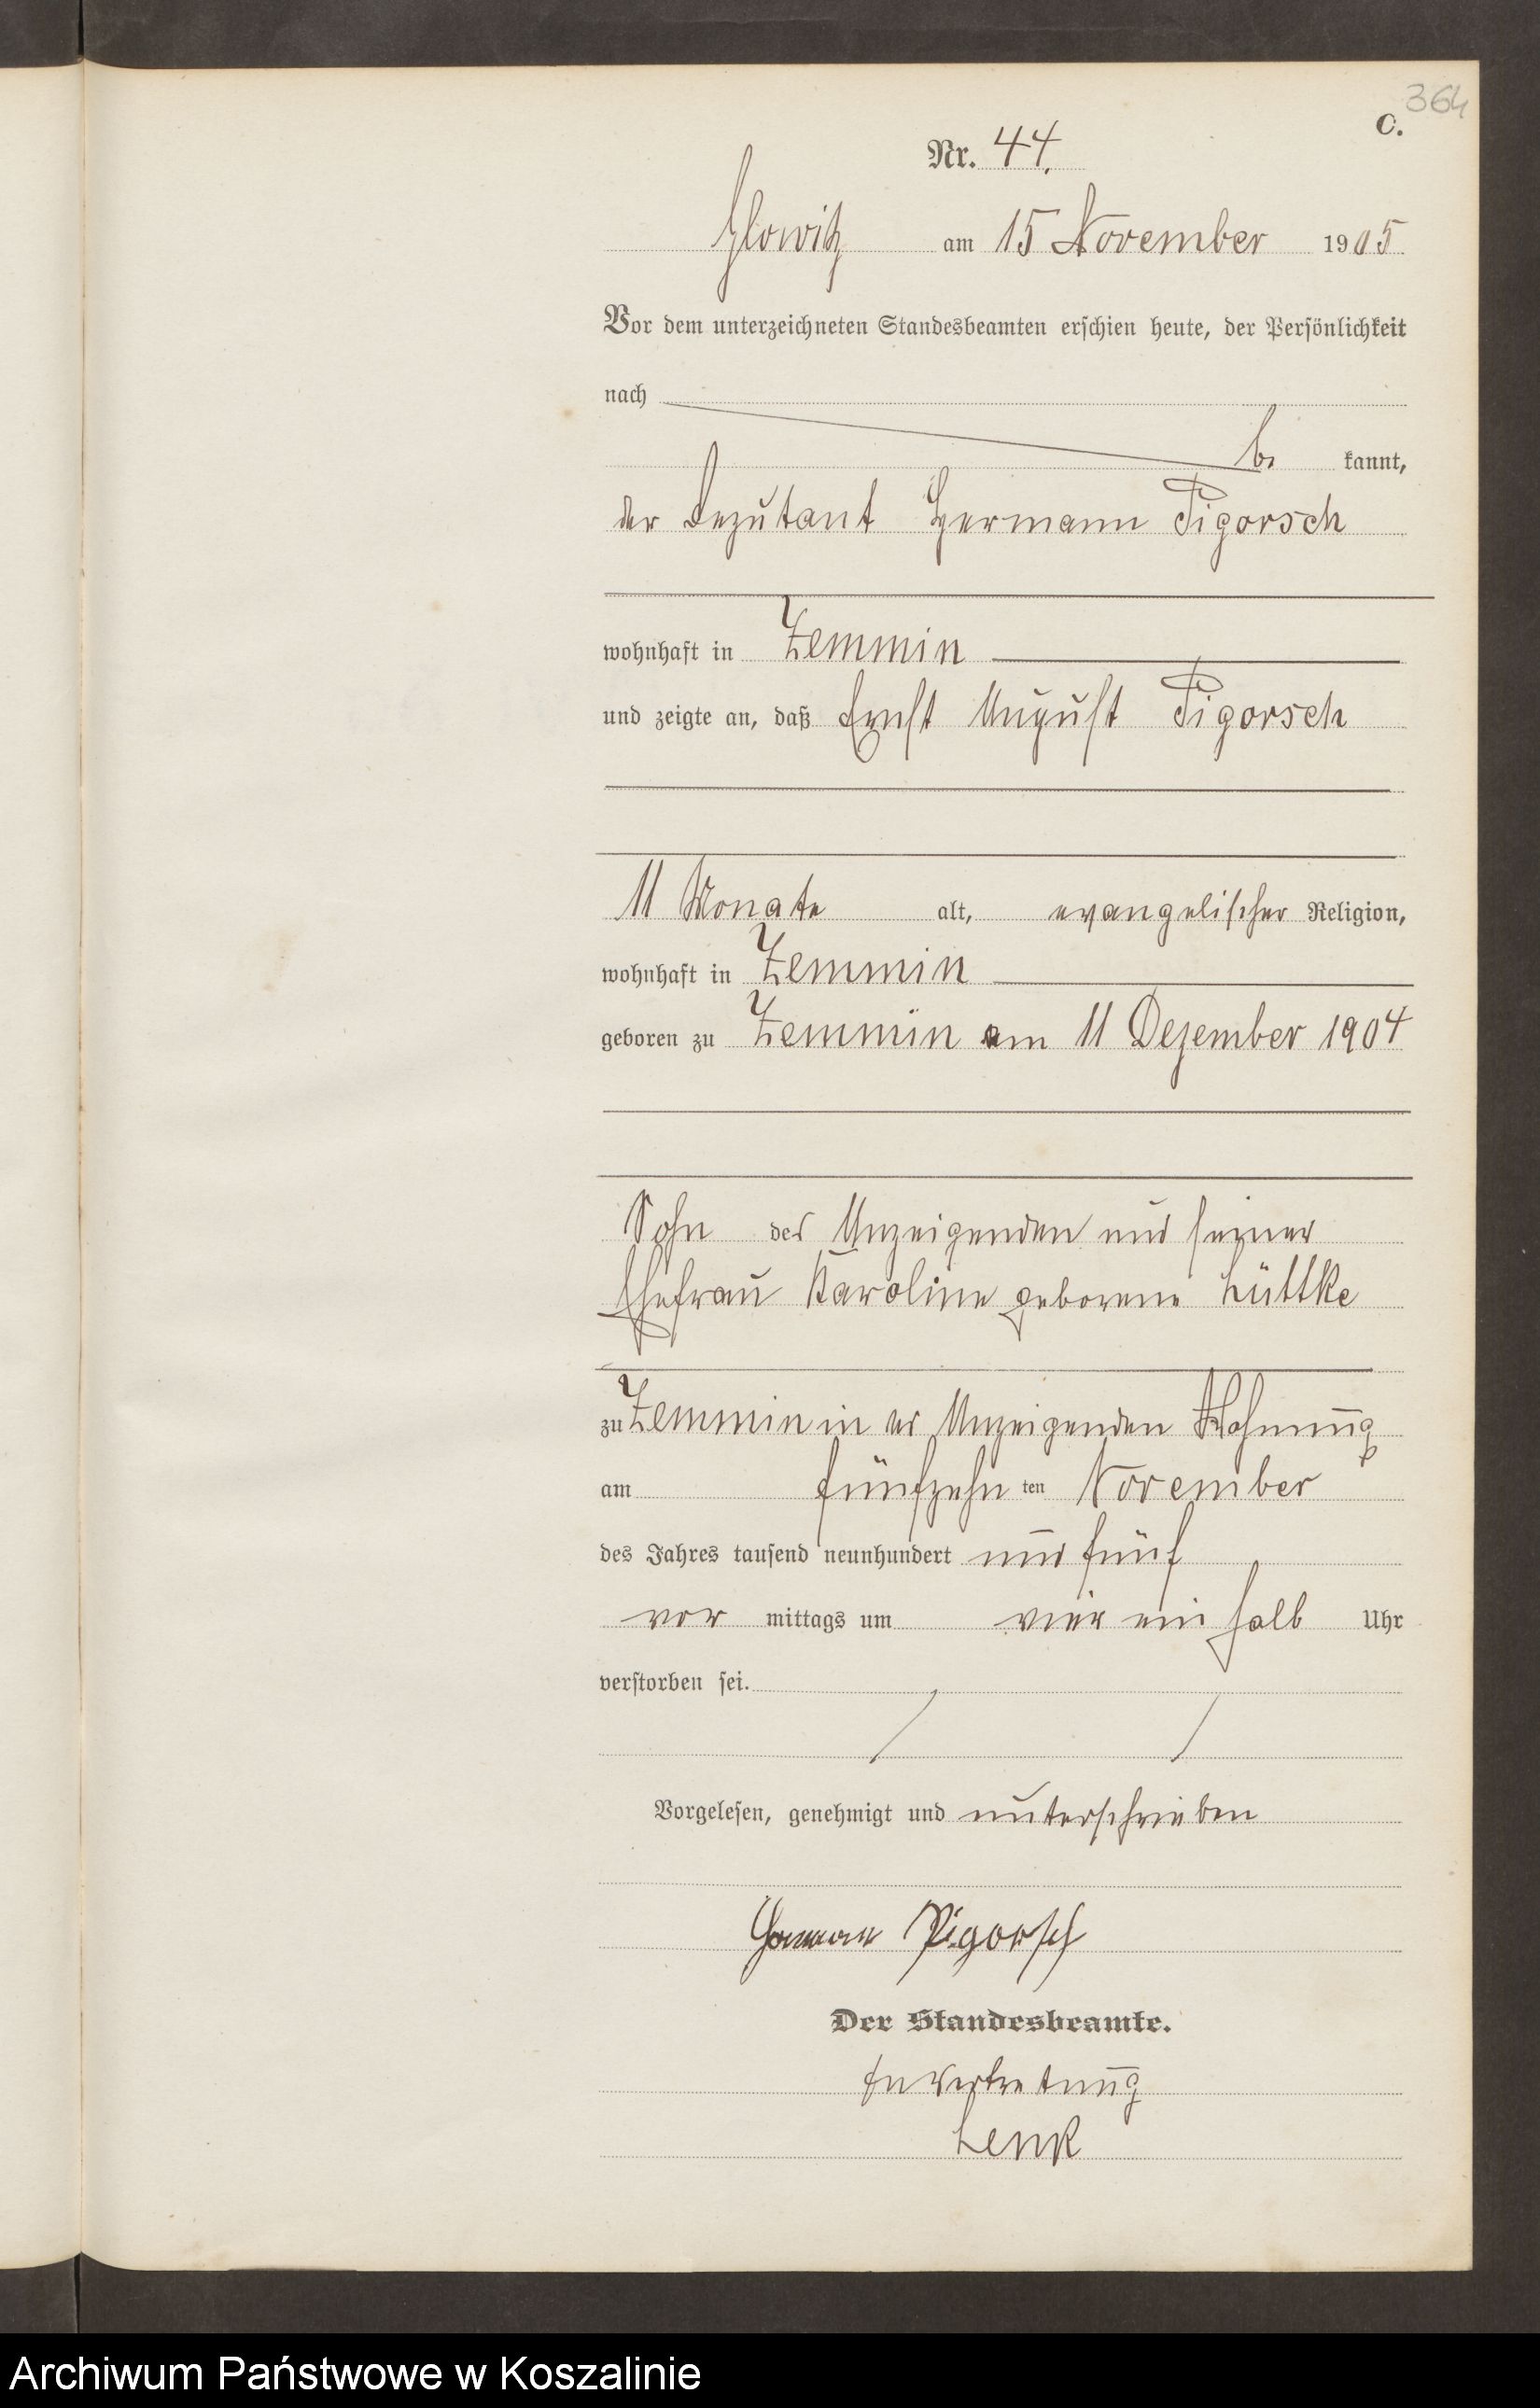 364
C.
Nr. 44.
Glowitz am 15 November 1905
Vor dem unterzeichneten Standesbeamten erschien heute, der Persönlichkeit
nach
be kannt,
der Deputant Hermann Pigorsch
wohnhaft in Zemmin
und zeigte an, daß Ernst August Pigorsch
11 Monate alt, evangelischer Religion,
wohnhaft in Zemmin
geboren zu Zemmin am 11 Dezember 1904
Sohn des Anzeigenden und seiner
Ehefrau Karoline geborene Lüttke
zu Zemmin in des Anzeigenden Wohnung
am fünfzehn ten November
des Jahres tausend neunhundert und fünf
vor mittags um vier ein halb Uhr
verstorben sei.
Vorgelesen, genehmigt und unterschrieben
Herman Pigorsch
Der Standesbeamte.
In Vertretung
Lenk
Archiwum Państwowe w Koszalinie